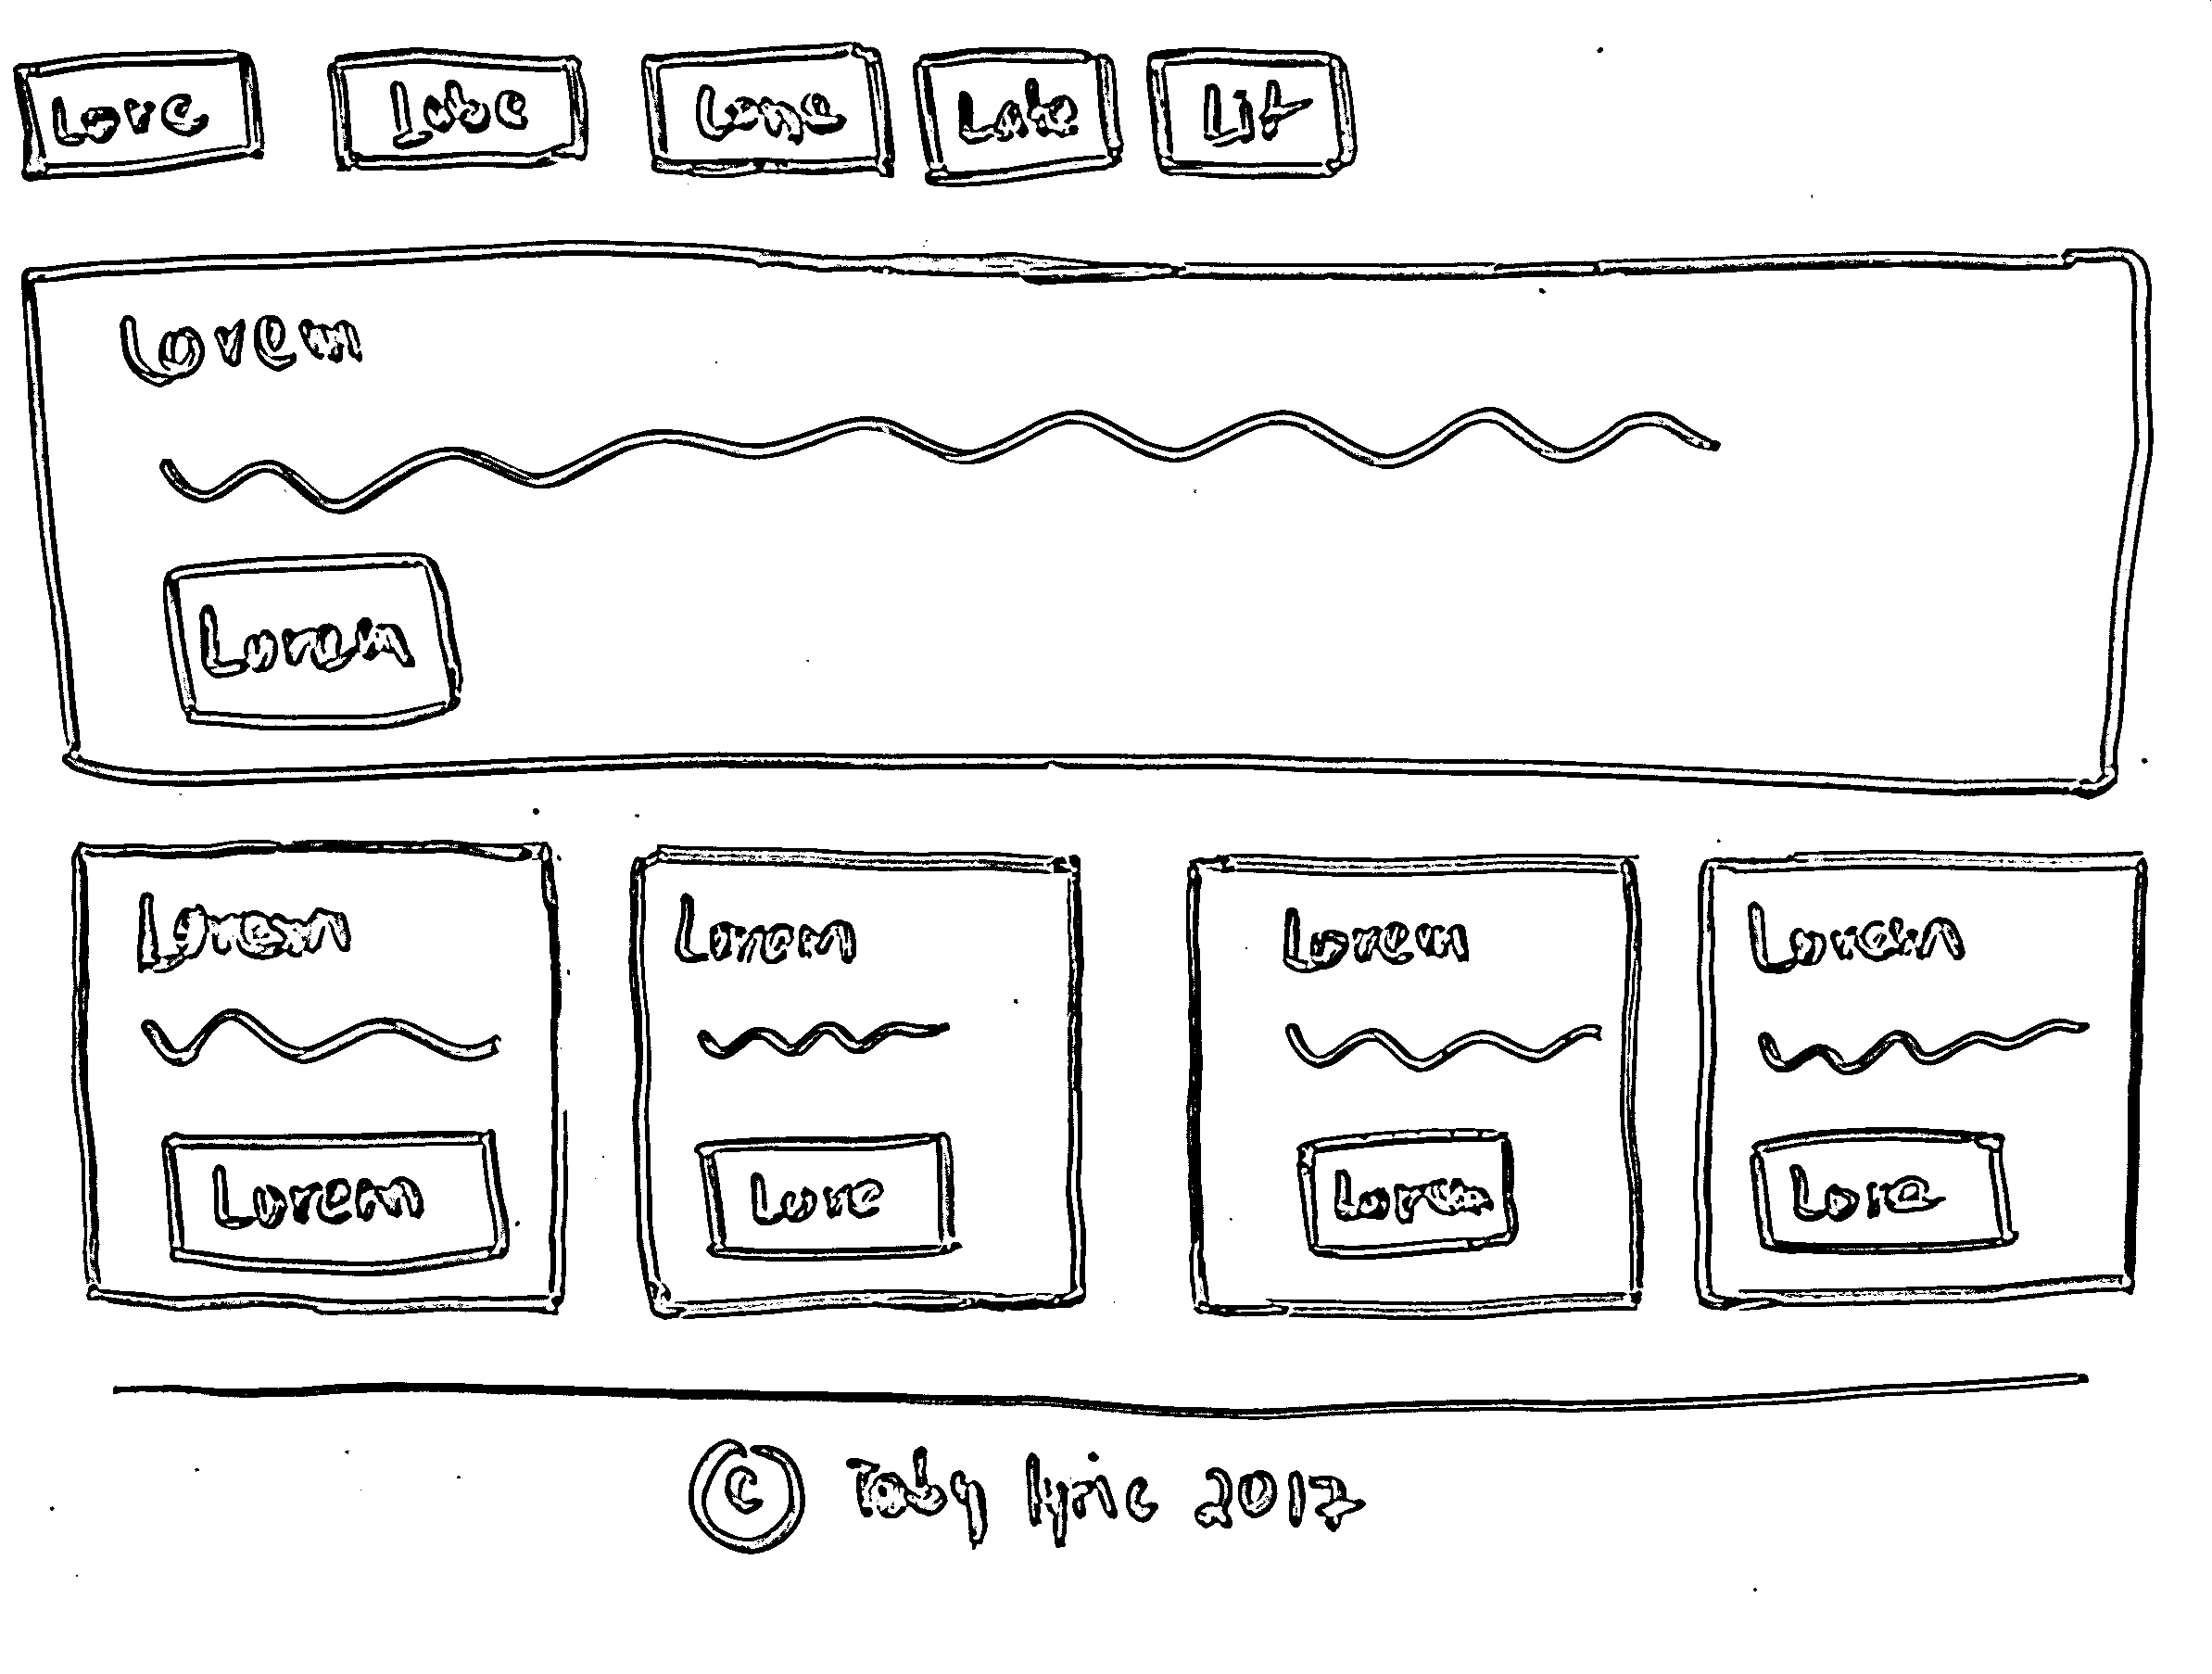 Love Lobe Lone Lake Lit
Lorem
Lorem
Lorem Lorem Lorem Lorem
Lorem Love Lorem Lore
© Toby lyric 2017